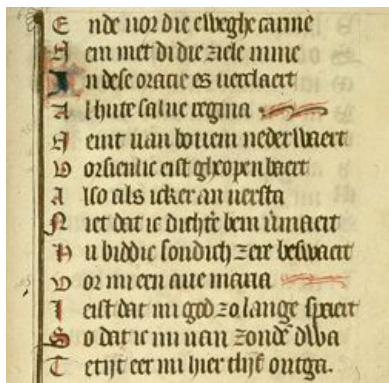 E nde uor die eweghe carine
N em met di die ziele mine
I n dese oracie es uerclaert
A l hute salue regina
N eemt uan bouen nederwaert
V orsienlic eist gheopenbaert
A lso als icker an uersta
N iet dat ic dichte bem vmaert
N u biddic sondich zere beswaert
V or mi een aue maria
I eist dat mi god zo lange spaert
S o dat ic mi uan zonde dwa
T etijt eer mi hier tlijf ontga.